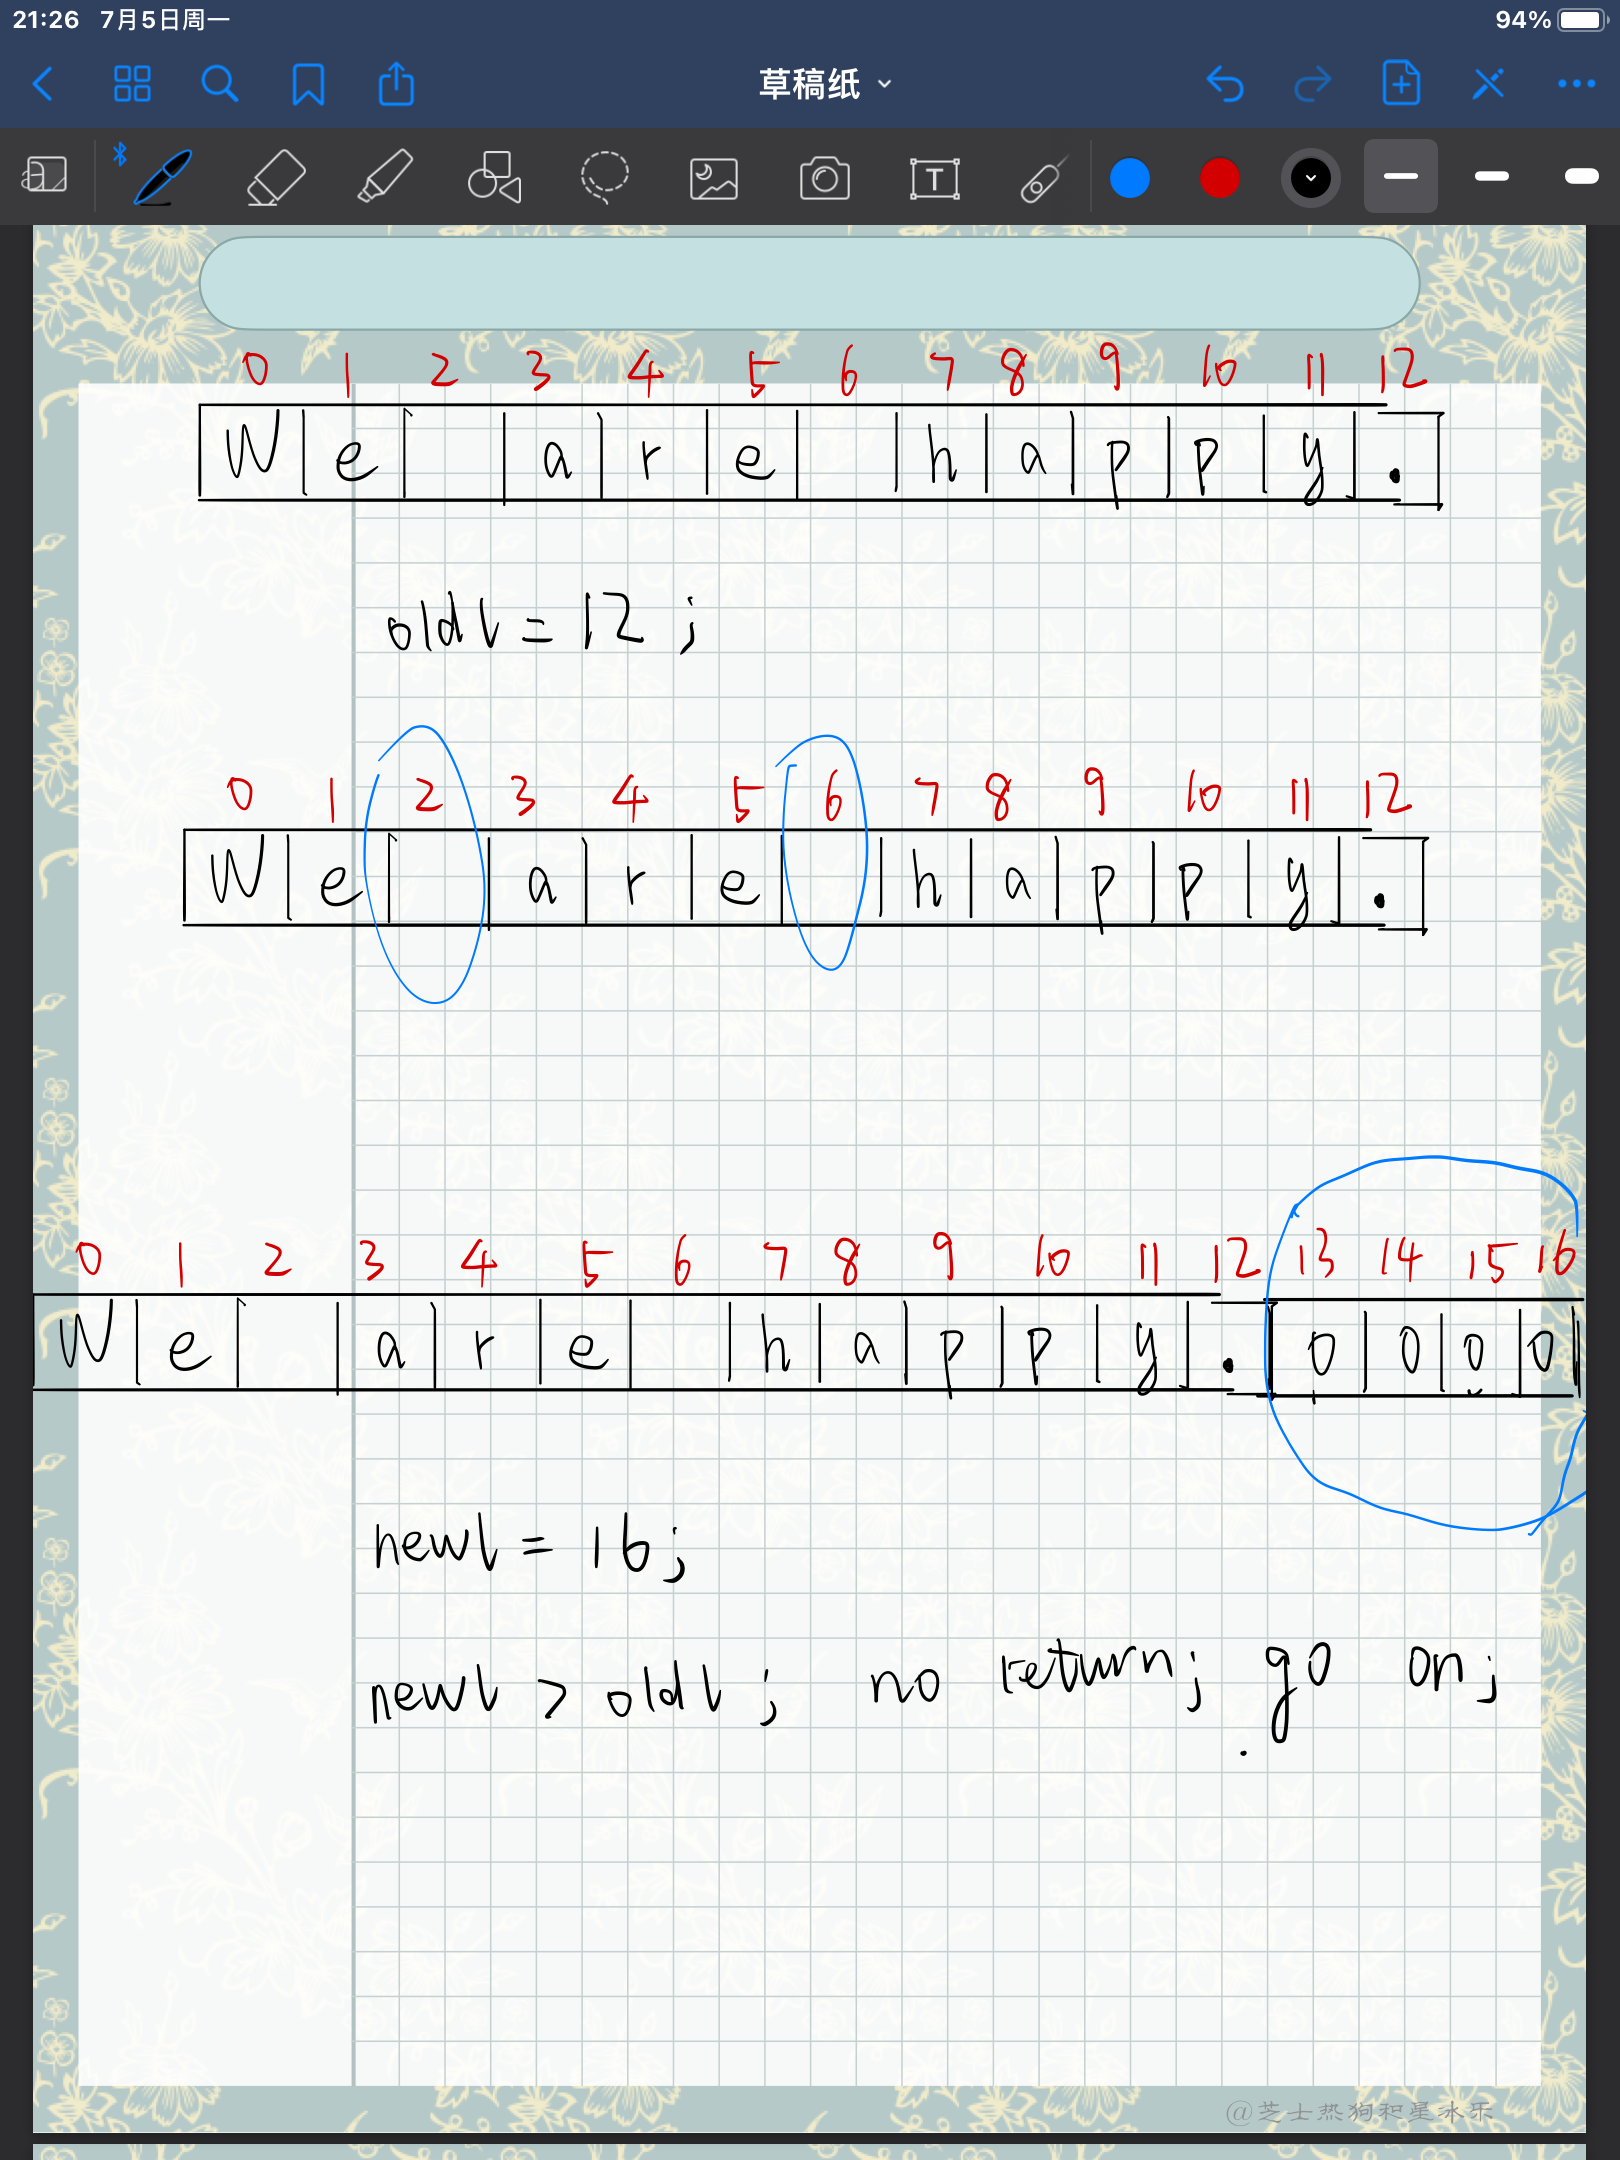 21:26 7月5日周一 94%
草稿纸
T
0 1 2 3 4 5 6 7 8 9 10 11 12
W e a r e h a p p y .
oldl = 12 ;
0 1 2 3 4 5 6 7 8 9 10 11 12
W e a r e h a p p y .
0 1 2 3 4 5 6 7 8 9 10 11 12 13 14 15 16
W e a r e h a p p y . 0 0 0 0
newl = 16 ;
newl > oldl ; no return ; go on ;
@芝士热狗和星冰乐